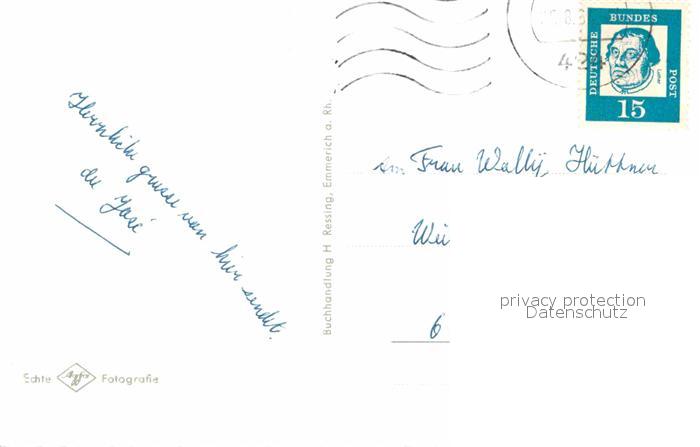 Herrliche grüsse von hier sendet.
die José
Buchhandlung H Ressing, Emmerich a. Rh.
Echte Agfa Fotografie
DEUTSCHE BUNDES POST
Luther
15
An Frau Wally Hüttner
6
privacy protection
Datenschutz